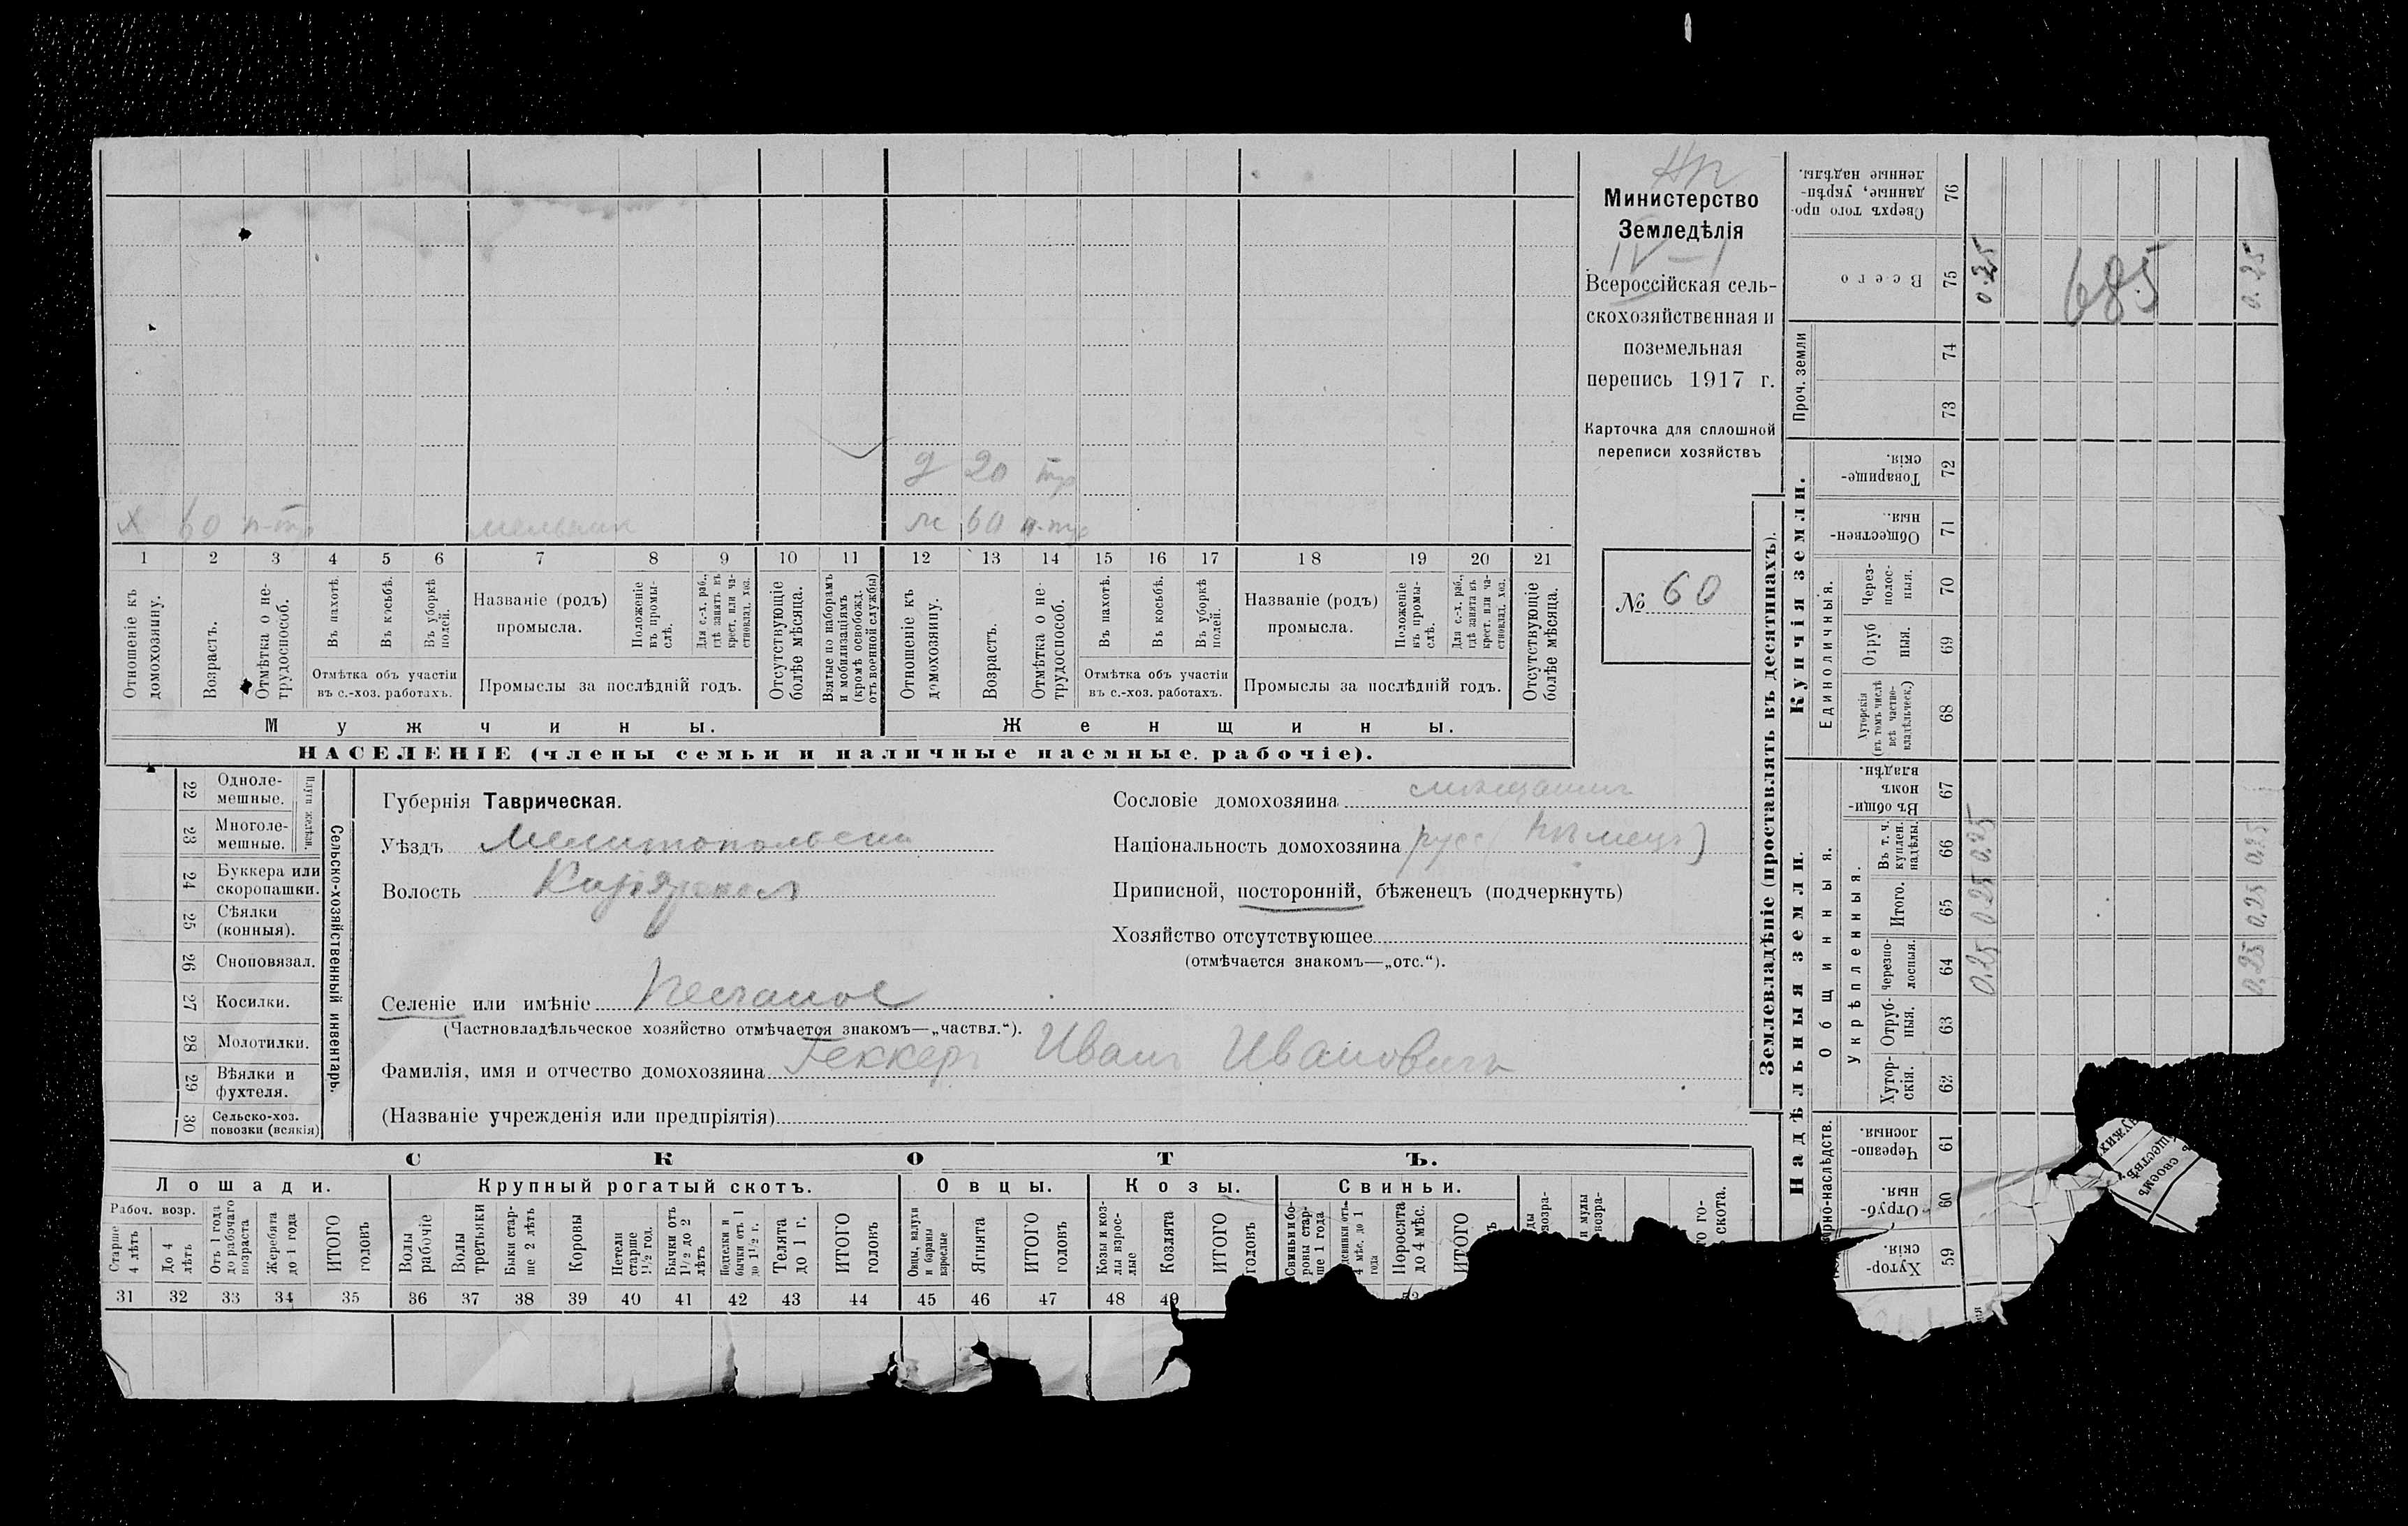 Нп
Министерство
Земледѣлія
IV – 1
Всероссійская сель-
скохозяйственная и
поземельная
перепись 1917 г.
Карточка для сплошной
переписи хозяйствъ
№ 60
д 20 тр
х 60 п-тр мельник
ж 60 п-тр
1 2 3 4 5 6 7 8 9 10 11 12 13 14 15 16 17 18 19 20 21
Отношеніе къ
домохозяину.
Возрастъ.
Отмѣтка о не-
трудоспособ.
Въ пахотѣ.
Въ косьбѣ.
Въ уборкѣ
полей.
Отмѣтка объ участіи
въ с.-хоз. работахъ.
Названіе (родъ)
промысла.
Положеніе
въ промы-
слѣ.
Для с.-х. раб.,
гдѣ занятъ въ
крест. или ча-
стновлад. хоз.
Промыслы за послѣдній годъ.
Отсутствующіе
болѣе мѣсяца.
Взятые по наборамъ
и мобилизаціямъ
(кромѣ освобожд.
отъ военной службы)
Отношеніе къ
домохозяину.
Возрастъ.
Отмѣтка о не-
трудоспособ.
Въ пахотѣ.
Въ косьбѣ.
Въ уборкѣ
полей.
Отмѣтка объ участіи
въ с.-хоз. работахъ.
Названіе (родъ)
промысла.
Положеніе
въ промы-
слѣ.
Для с.-х. раб.,
гдѣ занята въ
крест. или ча-
стновлад. хоз.
Промыслы за послѣдній годъ.
Отсутствующіе
болѣе мѣсяца.
Мужчины.
Женщины.
НАСЕЛЕНІЕ (члены семьи и наличные наемные рабочіе).
22 Одноле-
мешные.
23 Многоле-
мешные.
Плуги желѣзн.
24 Буккера или
скоропашки.
25 Сѣялки
(конныя).
26 Сноповязал.
27 Косилки.
28 Молотилки.
29 Вѣялки и
фухтеля.
30 Сельско-хоз.
повозки (всякія)
Сельско-хозяйственный инвентарь.
Губернія Таврическая.
Уѣздъ Мелитопольскій
Волость
Селеніе или имѣніе Песчаное
(Частновладѣльческое хозяйство отмѣчается знакомъ—„частвл.“).
Фамилія, имя и отчество домохозяина Геккеръ Иванъ Ивановичъ
(Названіе учрежденія или предпріятія)
Сословіе домохозяина мѣщанинъ
Національность домохозяина русс( Нѣмецъ)
Приписной, посторонній, бѣженецъ (подчеркнуть)
Хозяйство отсутствующее
(отмѣчается знакомъ—„отс.“).
СКОТЪ.
Лошади.
Крупный рогатый скотъ.
Овцы.
Козы.
Свиньи.
Рабоч. возр.
Старше
4 лѣтъ
До 4
лѣтъ
Отъ 1 года
до рабочаго
возраста
Жеребята
до 1 года
ИТОГО
головъ
Волы
рабочіе
Волы
третьяки
Быки стар-
ше 2 лѣтъ
Коровы
Нетели
старше
1½ год.
Бычки отъ
1½ до 2
лѣтъ
Подтелки и
бычки отъ 1
до 1½ г.
Телята
до 1 г.
ИТОГО
головъ
Овцы, валухи
и бараны
взрослые
Ягнята
ИТОГО
головъ
Козы и коз-
лы взрос-
лые
Козлята
ИТОГО
головъ
Свиньи и бо-
ровы стар-
ше 1 года
4 мѣс. до 1
года
Поросята
до 4 мѣс.
ИТОГО
скота.
31 32 33 34 35 36 37 38 39 40 41 42 43 44 45 46 47 48 49
Землевладѣніе (проставлять въ десятинахъ).
Купчія земли.
Надѣльныя земли.
Проч. земли
Единоличныя.
Общинныя.
Укрѣпленныя.
Сверхъ того про-
данные, укрѣп-
ленные надѣлы.
76
Всего
75
74
73
Товарище-
скія.
72
Обществен-
ныя.
71
Через-
полос-
ныя.
70
Отруб
ныя.
69
Хуторскія
(въ томъ числѣ
всѣ частно-
владѣльческ.)
68
Въ общи-
номъ
владѣн.
67
Въ т. ч.
куплен.
надѣлы.
66
Итого.
65
Черезпо-
лосныя.
64
Отруб-
ныя.
63
Хутор-
скія.
62
Черезпо-
лосныя.
61
Отруб-
ныя.
60
Хутор-
скія.
59
0.25
685
0.25
0.25 0.25 0.25
0.25 0.25 0.25
своемъ
чужихъ